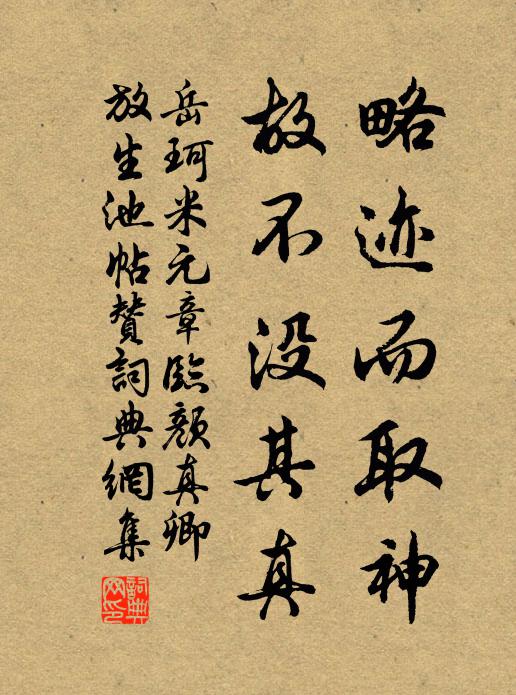 略迹而取神
故不没其真
岳珂米元章臨顏真卿
放生池帖贊詞典網集
詞典网印